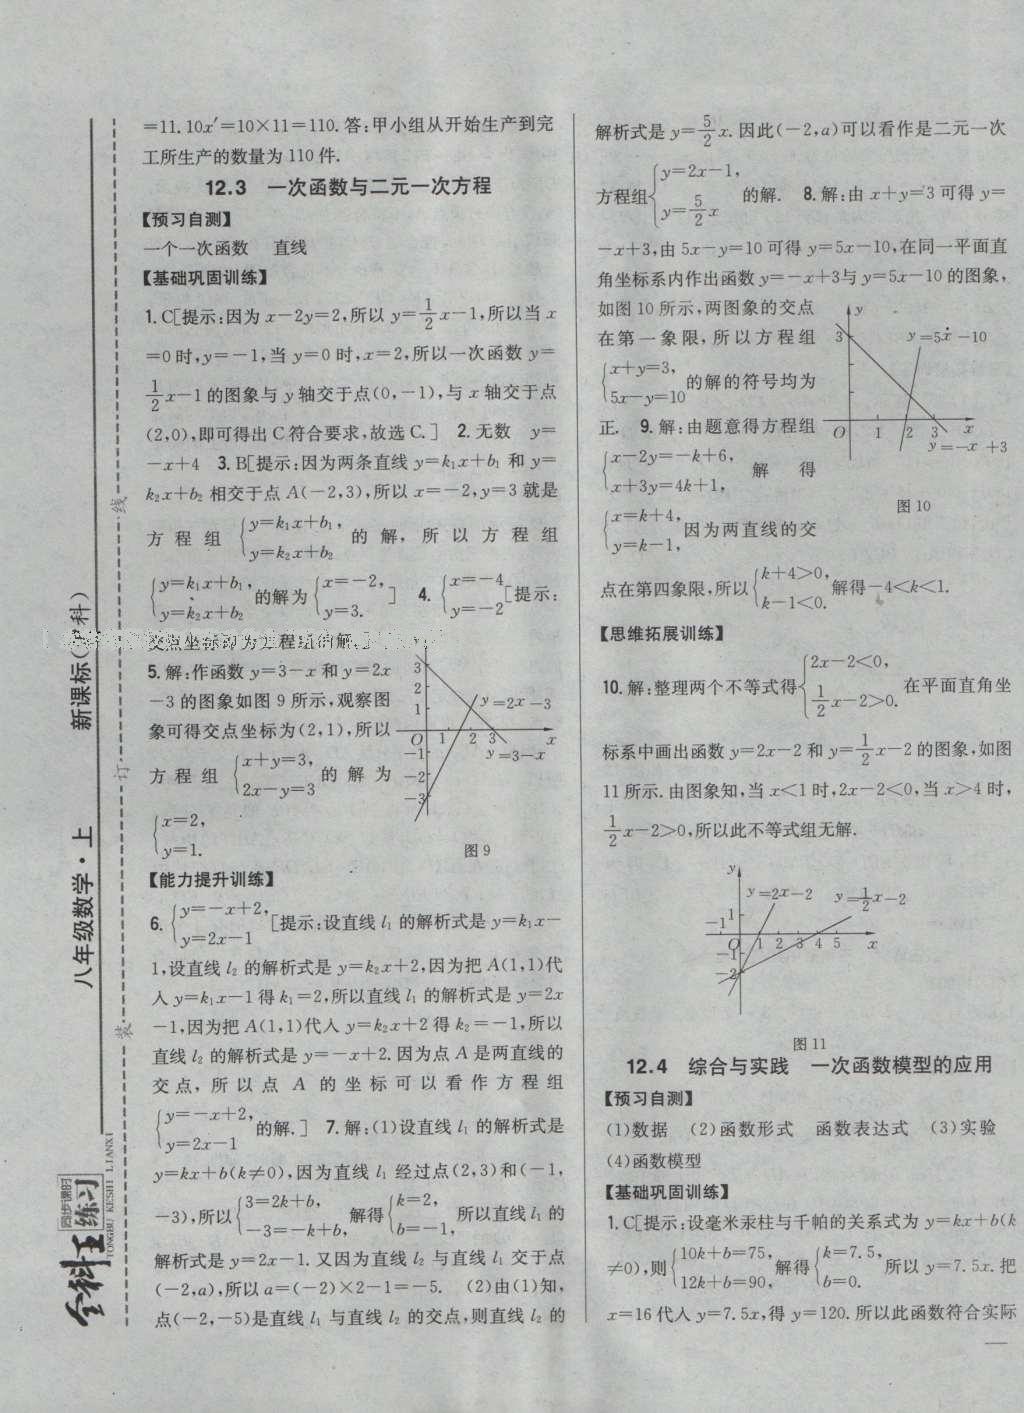 =11. 10x′=10×11=110. 答:甲小组从开始生产到完
工所生产的数量为 110 件.
12.3 一次函数与二元一次方程
【预习自测】
一个一次函数 直线
【基础巩固训练】
1. C[提示:因为 x-2y=2,所以 y=1/2x-1,所以当 x
=0时,y=-1,当 y=0 时,x=2,所以一次函数 y=
1/2x-1 的图象与 y 轴交于点(0,-1),与 x 轴交于点
(2,0),即可得出 C 符合要求,故选 C.] 2. 无数 y=
-x+4 3. B[提示:因为两条直线 y=k₁x+b₁ 和 y=
k₂x+b₂ 相交于点 A(-2,3),所以 x=-2,y=3 就是
方程组 {y=k₁x+b₁, y=k₂x+b₂ 的解,所以方程组
{y=k₁x+b₁, y=k₂x+b₂ 的解为 {x=-2, y=3. ] 4. {x=-4 y=-2 [提示:
交点坐标即为方程组的解.]
5. 解:作函数 y=3-x 和 y=2x
-3 的图象如图 9 所示,观察图
象可得交点坐标为(2,1),所以
方程组 {x+y=3, 2x-y=3 的解为
{x=2, y=1.
3
2
1
O 1 2 3 x
-1
-2
-3
y=2x-3
y=3-x
图 9
【能力提升训练】
6. {y=-x+2, y=2x-1 [提示:设直线 l₁ 的解析式是 y=k₁x-
1,设直线 l₂ 的解析式是 y=k₂x+2,因为把 A(1,1)代
入 y=k₁x-1 得 k₁=2,所以直线 l₁ 的解析式是 y=2x
-1,因为把 A(1,1)代入 y=k₂x+2 得 k₂=-1,所以
直线 l₂ 的解析式是 y=-x+2. 因为点 A 是两直线的
交点,所以点 A 的坐标可以看作方程组
{y=-x+2, y=2x-1 的解.] 7. 解:(1)设直线 l₁ 的解析式是
y=kx+b(k≠0),因为直线 l₁ 经过点(2,3)和(-1,
-3),所以 {3=2k+b, -3=-k+b, 解得 {k=2, b=-1, 所以直线 l₁ 的
解析式是 y=2x-1. 又因为直线 l₂ 与直线 l₁ 交于点
(-2,a),所以 a=(-2)×2-1=-5. (2)由(1)知,
点(-2,-5)是直线 l₁ 与直线 l₂ 的交点,则直线 l₂ 的
解析式是 y=5/2x. 因此(-2,a)可以看作是二元一次
方程组 {y=2x-1, y=5/2x 的解. 8. 解:由 x+y=3 可得 y=
-x+3,由 5x-y=10 可得 y=5x-10,在同一平面直
角坐标系内作出函数 y=-x+3与 y=5x-10 的图象,
如图 10 所示,两图象的交点
在第一象限,所以方程组
{x+y=3, 5x-y=10 的解的符号均为
正. 9. 解:由题意得方程组
{x-2y=-k+6, x+3y=4k+1, 解得
{x=k+4, y=k-1, 因为两直线的交
点在第四象限,所以 {k+4>0, k-1<0. 解得-4<k<1.
y
3
y=5x-10
O 1 2 3 x
y=-x+3
图 10
【思维拓展训练】
10. 解:整理两个不等式得 {2x-2<0, 1/2x-2>0. 在平面直角坐
标系中画出函数 y=2x-2 和 y=1/2x-2 的图象,如图
11 所示. 由图象知,当 x<1 时,2x-2<0,当 x>4 时,
1/2x-2>0,所以此不等式组无解.
y
y=2x-2 y=1/2x-2
1
-1 O 1 2 3 4 5 x
-1
-2
图 11
12.4 综合与实践 一次函数模型的应用
【预习自测】
(1)数据 (2)函数形式 函数表达式 (3)实验
(4)函数模型
【基础巩固训练】
1. C[提示:设毫米汞柱与千帕的关系式为 y=kx+b(k
≠0),则 {10k+b=75, 12k+b=90, 解得 {k=7.5, b=0. 所以 y=7.5x. 把
x=16 代入 y=7.5x,得 y=120. 所以此函数符合实际
线
订
装
八年级数学·上 新课标(沪科)
全科王
同步课时
练习
TONGBU KESHI LIANXI